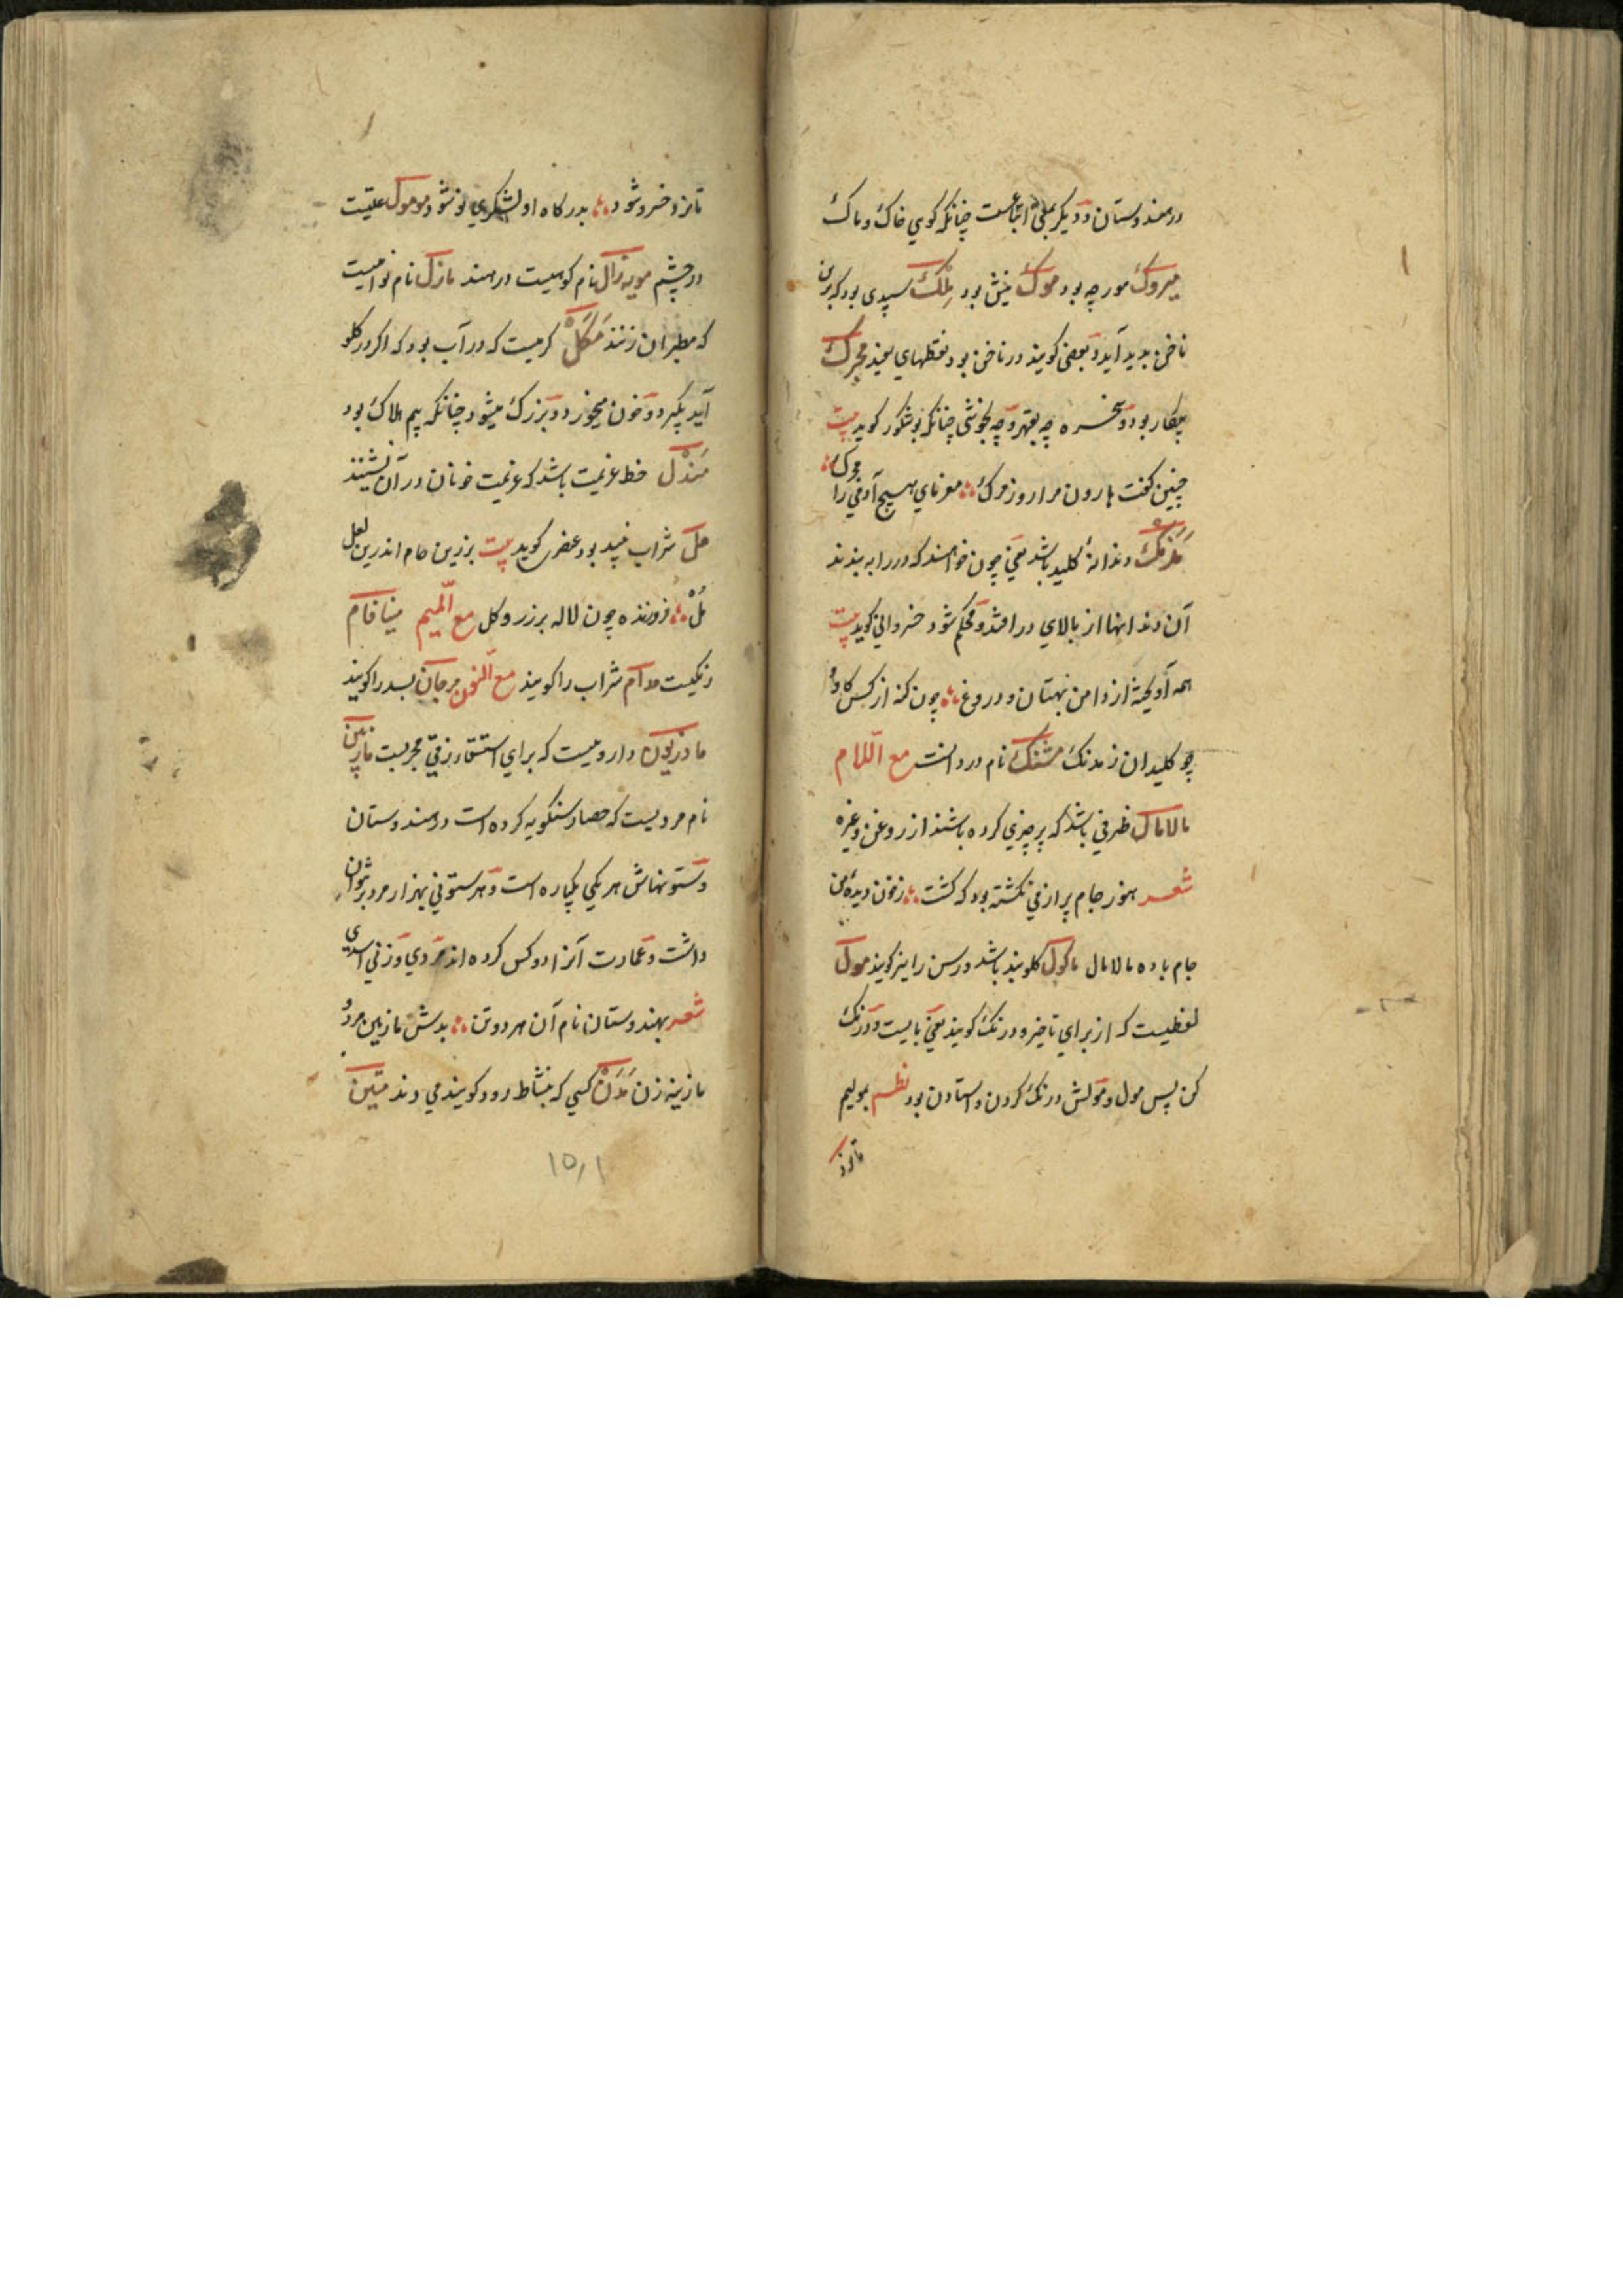 در هندوستان و دیگر بمعنی اتباعست چنانکه کوی خاک و ماک
میروک مورچه بود موک نیش بود ملک سپیدی بود که برین
ناخن بدید آید و بعضی کویند در ناخن بود نقطهای سفید مجرک
بیکار بود و سخره چه بقهر و چه بخوشی چنانکه بوشکور کوید بیت
چنین کفت هارون مرا روز مرک مفرمای هیچ آدمی را مجرک
مدنک دندانهٔ کلید باشد یعنی چون خواهند که در را به بندند
آن دندانها از بالای در افتد و محکم شود خسروانی کوید بیت
همه آویخته از دامن بهتان و دروغ چون کنه از کس کاو و
چو کلیدان ز مدنک مشنک نام درد است مع اللام
مالامال ظرفی باشد که پر چیزی کرده باشند از روغن و غیره
شعر هنوز جام پر از می نکشته بود که کشت ز خون دیدهٔ من
جام باده مالامال ماکول کلوبند باشد و رسن را نیز کویند مول
لفظیست که از برای تاخیر و درنک کویند یعنی بایست و درنک
کن پس مول و مولش درنک کردن و استادن بود نظم بمولیم
تا نزد
تا نزد خسرو شود بدرکاه او لشکری نو شود موموک علتیست
در چشم مویه زال نام کوهیست در هند مازل نام نواییست
که مطربان زنند مکل کرمیست که در آب بود که اکر در کلو
آید بکیرد و خون میخورد و بزرک میشود چنانکه بیم هلاک بود
مندل خط عزیمت باشد که عزیمت خوانان در آن نشینند
مل شراب نبید بود عنصری کوید بیت بزرین جام اندرین لعل
مل فروزنده چون لاله بر زرد کل مع المیم مینا فام
رنکیست مدام شراب را کویند مع النون مرجان بسد را کویند
مادزیون دارویست که برای استسقاء زقی مجربست مازیین
نام مردیست که حصار سنکویه کرده است در هندوستان
و ستونهاش هر یکی یکپاره است و هر ستونی بهزار مرد بر توان
داشت و عمارت آنرا دو کس کرده اند مردی و زنی اسدی
شعر بهندوستان نام آن هر دو تن بدش مازیین مرد و
مازینه زن مدن کسی که بنشاط رود کویند می دند متین
۱۵۱